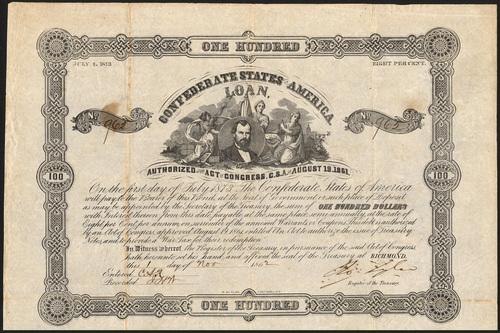 ONE HUNDRED
JULY 1, 1873
EIGHT PERCENT.
CONFEDERATE STATES AMERICA.
LOAN,
No. 963
No. 963
AUTHORIZED ACT OF CONGRESS, C.S.A. AUGUST 19, 1861.
100
100
On the first day of July 1873 The Confederate States of America
will pay to the Bearer of this Bond, at the seat of Government or such place of Deposit
as may be appointed by the Secretary of the Treasury, the sum of ONE HUNDRED DOLLARS
with Interest thereon from this date payable at the same place, semi annually, at the rate of
Eight per Cent per annum on surrender of the annexed Warrants or Coupons. This bond is authorized
by an Act of Congress approved August 19, 1861, entitled An Act to authorize the issue of Treasury
Notes, and to provide a War Tax for their redemption.
In Witness whereof, the Register of the Treasury, in pursuance of the said Act of Congress
hath hereunto set his hand, and affixed the seal of the Treasury at RICHMOND,
this day of Nov 1862
Entered
Recorded
Tyler
Register of the Treasury.
ONE HUNDRED